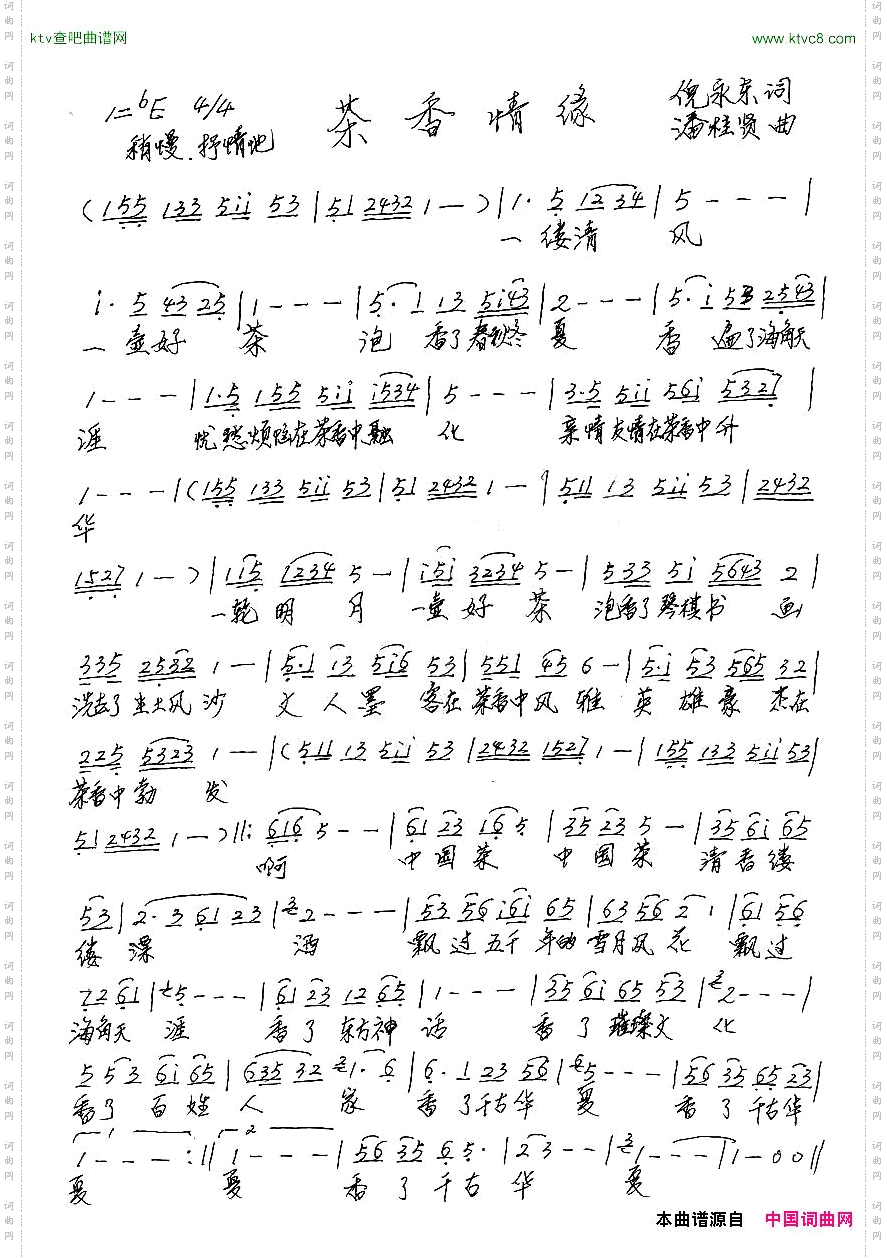 ktv查吧曲谱网 www.ktvc8.com
1=ᵇE 4/4 茶香情缘 倪永东词
稍慢.抒情地 潘桂贤曲
(155 133 5ii 53|51 2432 1—)|1· 5 12 34|5 - - -|
一缕清 风
i· 5 43 25|1 - - -|5· 1 13 5i43|2 - - -|5· i 53 2543|
一壶好 茶 泡 香了春秋冬 夏 香 遍了海角天
1 - - -|1·5 155 5ii i534|5 - - -|3·5 5ii 56i 5327|
涯 忧愁烦恼在茶香中融 化 亲情友情在茶香中升
1 - - -|(155 133 5ii 53|51 2432 1—|511 13 5ii 53|2432
华
1527 1—)|1i5 1234 5—|i5i 3234 5—|533 5i 5643 2|
一轮 明 月 一壶 好 茶 泡香了琴棋书 画
335 2532 1—|5·1 13 5i6 53|551 45 6—|5·i 53 565 32|
洗去了尘土风 沙 文 人 墨 客在 茶香中风 雅 英 雄 豪 杰在
225 5323 1—|(511 13 5ii 53|2432 1527 1—|155 133 5ii 53|
茶香中 勃 发
51 2432 1—)||:616 5 - -|61 23 16 5|35 23 5—|35 6i 65
啊 中 国 茶 中 国 茶 清 香 缕
53|2·3 61 23|2 - - -|53 56 i6i 65|63 56 2 1|61 56
缕 漂 洒 飘 过 五千 年的 雪月风 花 飘 过
72 61|5 - - -|61 23 12 65|1 - - -|35 6i 65 53|2 - - -|
海角天 涯 香 了 东方神 话 香 了 璀璨文 化
5 53 6i 65|635 32 1· 6|6· 1 23 56|5 - - -|56 35 65 23|
香了 百 姓 人 家 香 了千古华 夏 香 了 千古华
1 2
1 - - -:||1 - - -|56 35 6 5·|23 - -|1 - - -|1—00||
夏 夏 香 了 千 古 华 夏
本曲谱源自 中国词曲网